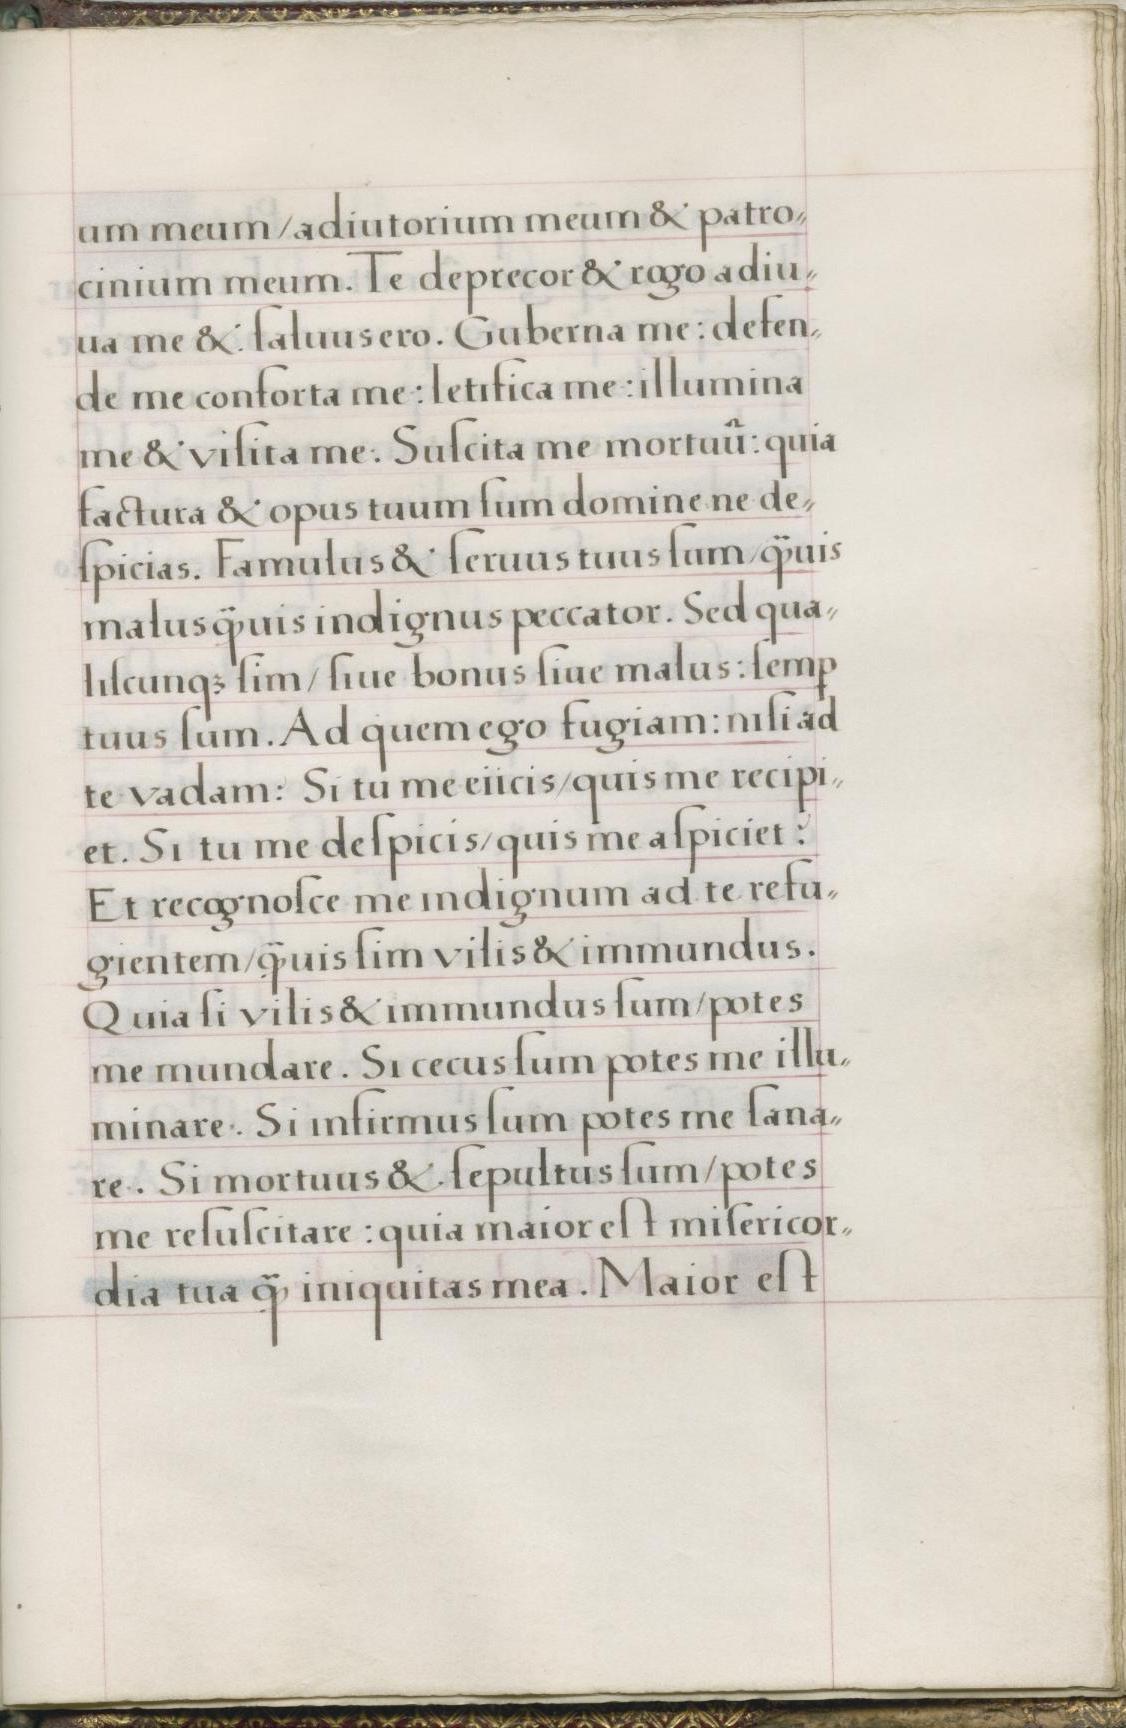 um meum/adiutorium meum &· patro„
cinium meum. Te deprecor &· rogo adiu„
ua me &·. ſaluus ero. Guberna me: defen„
de me conforta me: letifica me: illumina
me &· viſita me. Suſcita me mortuũ: quia
factura &· opus tuum ſum domine ne de„
ſpicias. Famulus &· ſeruus tuus ſum/q̃uis
malus q̃uis indignus peccator. Sed qua„
liſcunqꝫ ſim/ ſiue bonus ſiue malus: ſemꝑ
tuus ſum. Ad quem ego fugiam: niſi ad
te vadam: Si tu me eiicis/quis me recipi„
et. Si tu me deſpicis/quis me aſpiciet?
Et recognoſce me indignum ad te refu„
gientem/q̃uis ſim vilis & immundus.
Quia ſi vilis & immundus ſum/potes
me mundare. Si cecus ſum potes me illu„
minare. Si infirmus ſum potes me ſana„
re. Si mortuus &. ſepultus ſum/potes
me reſuſcitare: quia maior eſt miſericor„
dia tua q̃ iniquitas mea. Maior eſt